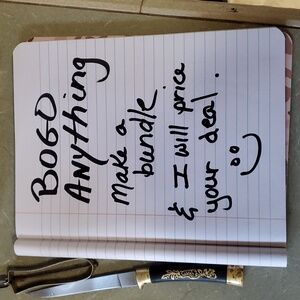 BOGO
Anything
Make a
bundle
& I will price
your deal.